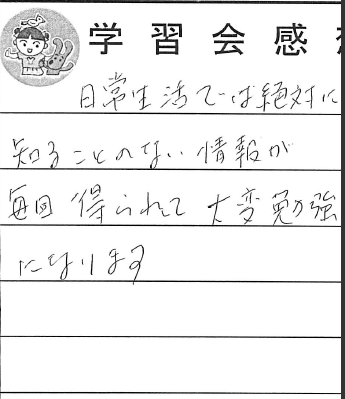 学習会感
日常生活では絶対に
知ることのない情報が
毎回得られて大変勉強
になります